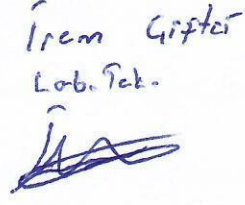 İrem Çiftçi
Lab. Tek.